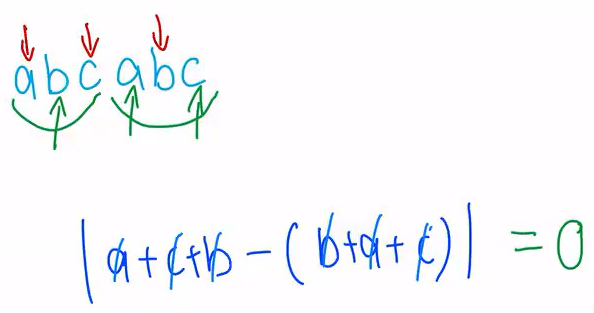 abc abc
|a+c+b-(b+a+c)| = 0